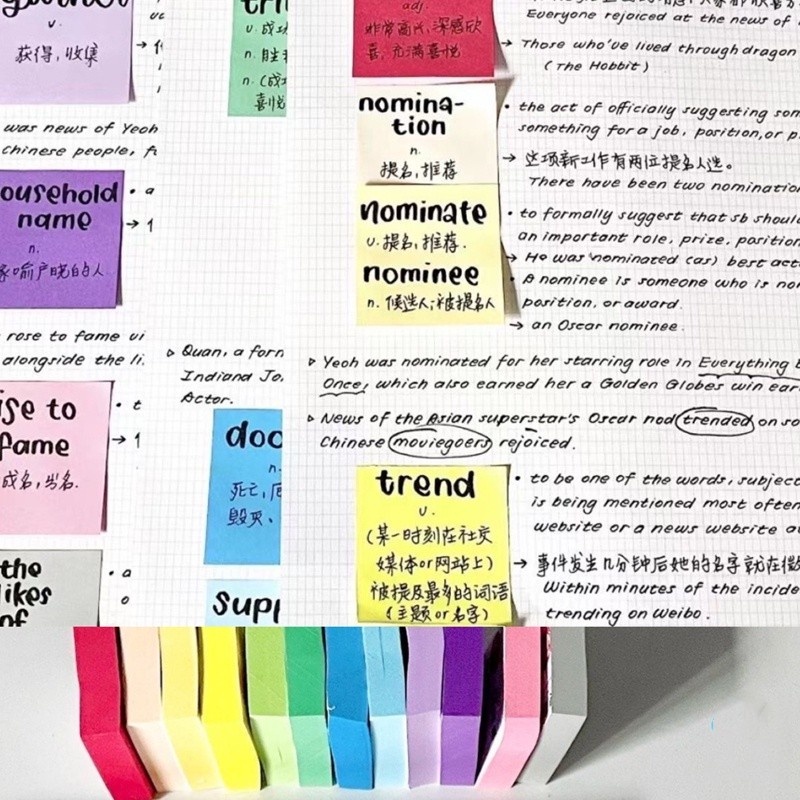 v.
获得,收集
was news of Yeoh
Chinese people, f
ousehold
name
n.
家喻户晓的人
• a
→
rose to fame vi
alongside the li
ise to
fame
成名,出名.
• t
→
the
likes
of
• a
tri
v. 成功
n. 胜利
n. (成功
喜悦
▷ Quan, a form
Indiana Jo
Actor.
doo
n.
死亡,厄
毁灭、
supp
adj.
非常高兴,深感欣
喜,充满喜悦
Everyone rejoiced at the news of
→ Those who've lived through dragon
(The Hobbit)
nomina-
tion
n.
提名,推荐
• the act of officially suggesting som
something for a job, position, or p
→ 这项新工作有两位提名人选。
There have been two nomination
nominate
v. 提名,推荐.
nominee
n. 候选人;被提名人
• to formally suggest that sb shoul
an important role, prize, position
→ He was nominated (as) best act
• A nominee is someone who is nom
position, or award.
→ an Oscar nominee.
▷ Yeoh was nominated for her starring role in Everything E
Once, which also earned her a Golden Globes win ear
▷ News of the Asian superstar's Oscar nod trended on so
Chinese moviegoers rejoiced.
trend
v.
(某一时刻在社交
媒体or网站上)
被提及最多的词语
(主题or名字)
• to be one of the words, subject
is being mentioned most often
website or a news website a
→ 事件发生几分钟后她的名字就在微
Within minutes of the incide
trending on Weibo.